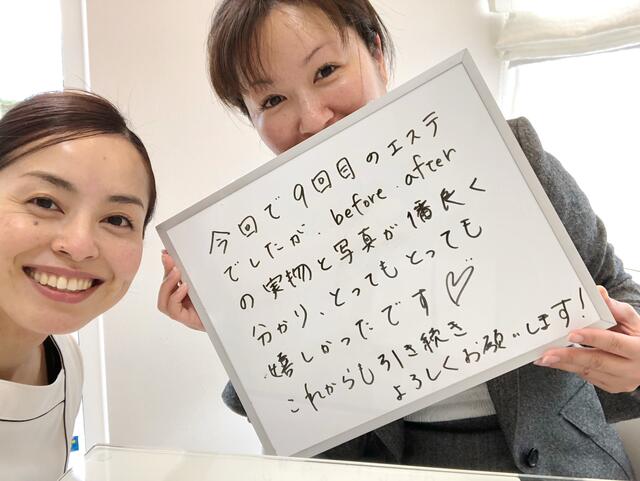 今回で9回目のエステ
でしたが、before.after
の実物と写真が1番良く
分かり、とってもとっても
嬉しかったです♡
これからも引き続き
よろしくお願いします!